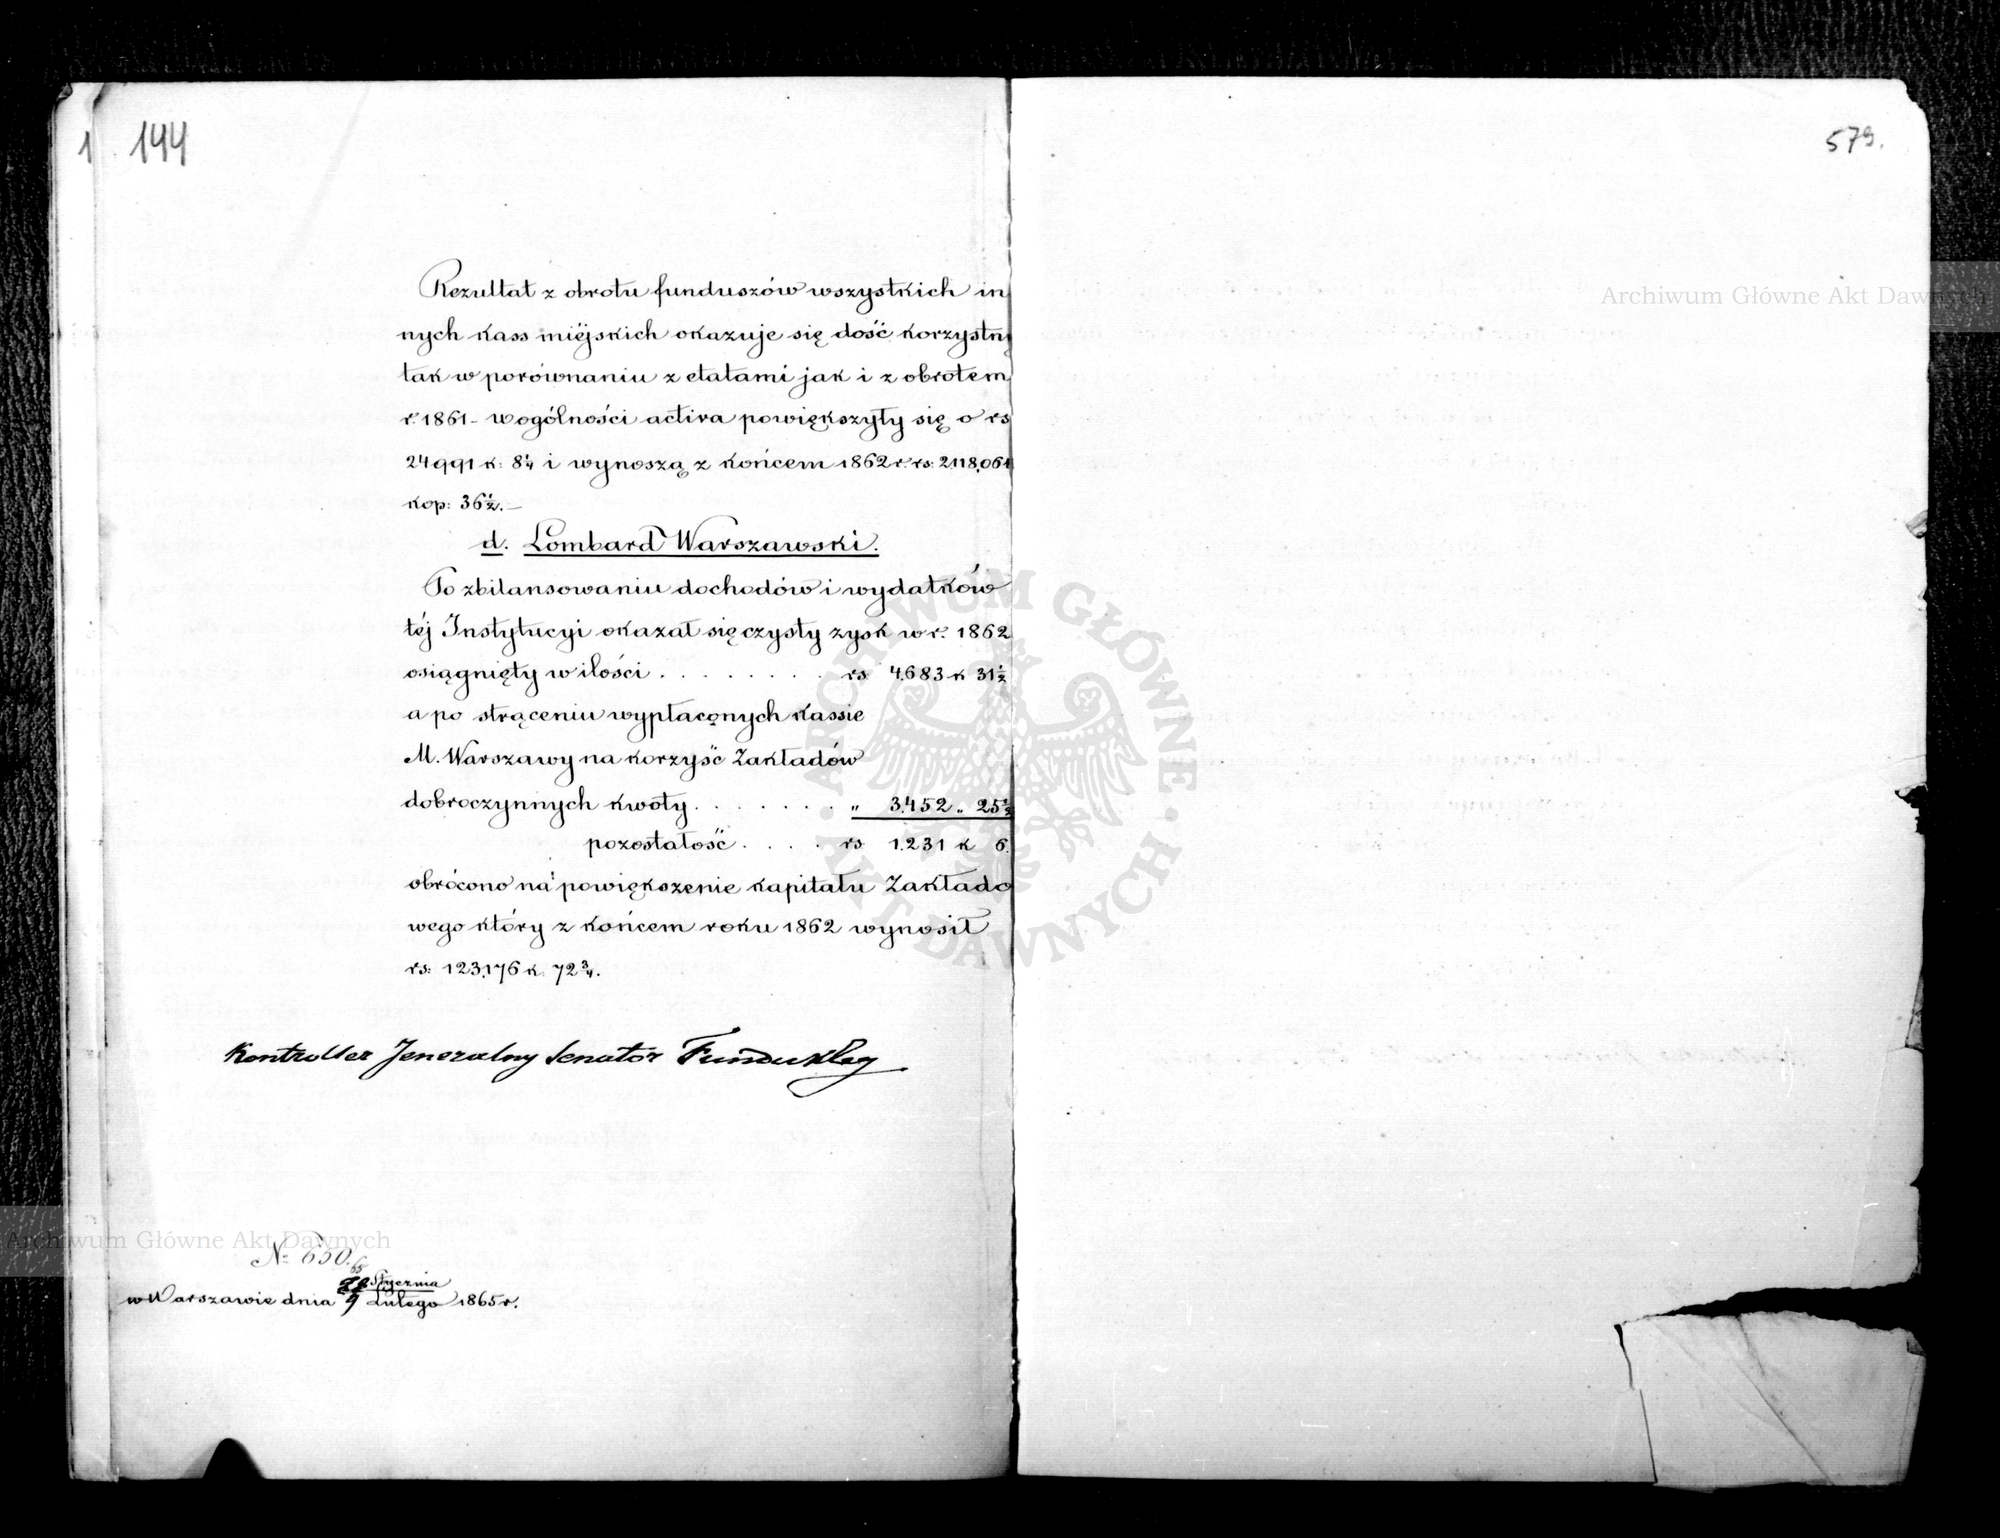 144
579.
Rezultat z obrotu funduszów wszystkich in
nych kass miéjskich okazuje się dość korzystny
tak w porównaniu z etatami jak i z obrotem
r. 1861 - wogólności activa powiększyły się o rs
24991 k: 8¼ i wynoszą z końcem 1862 r. rs: 2.118,061
kop: 36½. —
d. Lombard Warszawski.
Po zbilansowaniu dochodów i wydatków
téj Instytucyi okazał się czysty zysk w r. 1862
osiągnięty w ilości . . . . . . . rs 4.683 k 31½
a po strąceniu wypłaconych kassie
M. Warszawy na korzyść Zakładów
dobroczynnych kwoty . . . . . . . „ 3.452 „ 25½
pozostałość . . . . rs 1.231 k 6.
obrócono na powiększenie kapitału Zakłado
wego który z końcem roku 1862 wynosił
rs: 123.176 k. 72¾.
Kontroller Jeneralny Senator Funduklej
№ 650.
65
Stycznia
w Warszawie dnia 9 Lutego 1865 r.
Archiwum Główne Akt Dawnych
Archiwum Główne Akt Dawnych
ARCHIWUM GŁÓWNE AKT DAWNYCH